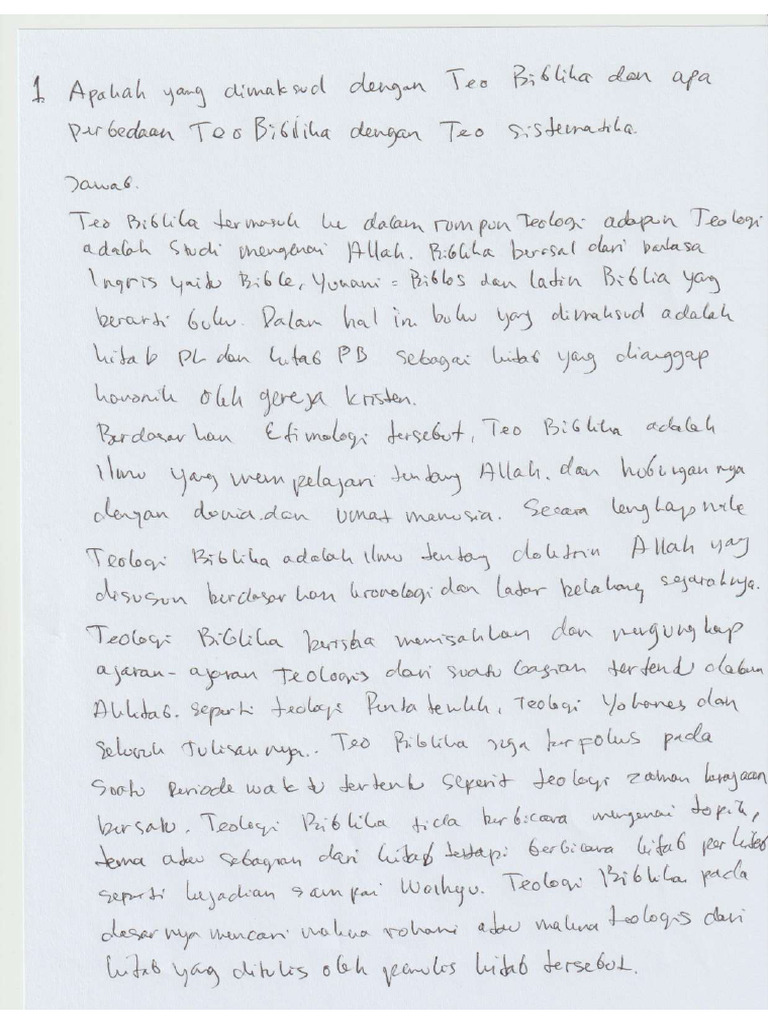 1. Apakah yang dimaksud dengan Teo Biblika dan apa
perbedaan Teo Biblika dengan Teo sistematika.
Jawab.
Teo Biblika termasuk ke dalam rumpun Teologi adapun Teologi
adalah Studi mengenai Allah. Biblika berasal dari bahasa
Ingris yaitu Bible, Yunani = Biblos dan latin Biblia yang
berarti buku. Dalam hal ini buku yang dimaksud adalah
kitab PL dan kitab PB sebagai kitab yang dianggap
kanonik oleh gereja kristen.
Berdasarkan Etimologi tersebut, Teo Biblika adalah
Ilmu yang mempelajari tentang Allah. dan hubungannya
dengan dunia dan umat manusia. Secara lengkapnya
Teologi Biblika adalah Ilmu tentang doktrin Allah yang
disusun berdasarkan kronologi dan latar belakang sejarahnya.
Teologi Biblika berisha memisahkan dan mengungkap
ajaran-ajaran Teologis dari suatu bagian tertentu dalam
Alkitab. seperti teologi Pentateukh, Teologi Yohanes dan
seluruh tulisannya.. Teo Biblika juga berfokus pada
suatu periode waktu tertentu seperit teologi zaman kerajaan
bersatu. Teologi Biblika tida berbicara mengenai topik,
tema atau sebagian dari kitab tettapi berbicara kitab per kitab
seperti kejadian sampai Wahyu. Teologi Biblika pada
dasarnya mencari makna rohani atau makna teologis dari
kitab yang ditulis oleh penulis kitab tersebut.